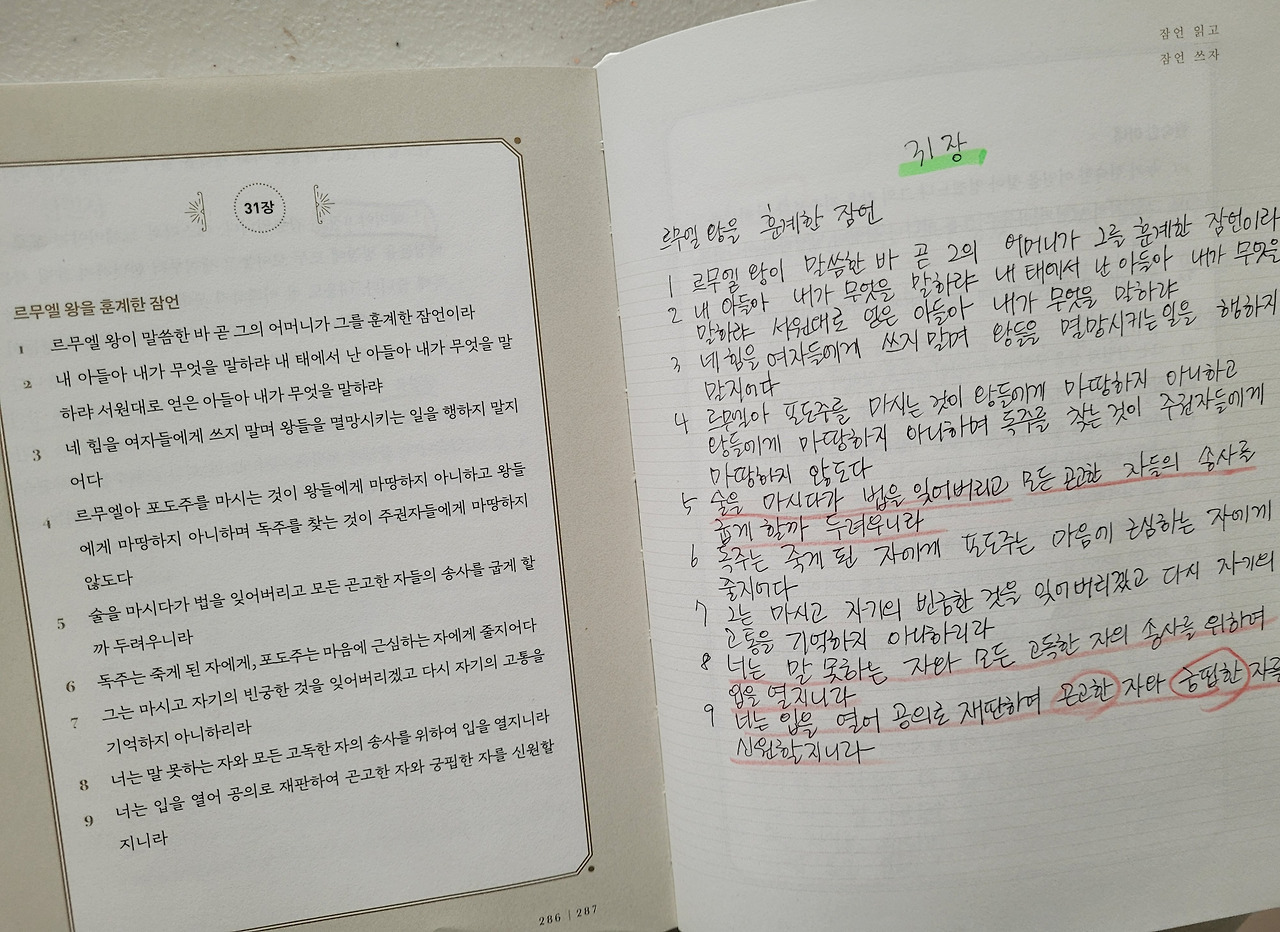 31장
르무엘 왕을 훈계한 잠언
1 르무엘 왕이 말씀한 바 곧 그의 어머니가 그를 훈계한 잠언이라
2 내 아들아 내가 무엇을 말하랴 내 태에서 난 아들아 내가 무엇을 말
하랴 서원대로 얻은 아들아 내가 무엇을 말하랴
3 네 힘을 여자들에게 쓰지 말며 왕들을 멸망시키는 일을 행하지 말지
어다
4 르무엘아 포도주를 마시는 것이 왕들에게 마땅하지 아니하고 왕들
에게 마땅하지 아니하며 독주를 찾는 것이 주권자들에게 마땅하지
않도다
5 술을 마시다가 법을 잊어버리고 모든 곤고한 자들의 송사를 굽게 할
까 두려우니라
6 독주는 죽게 된 자에게, 포도주는 마음에 근심하는 자에게 줄지어다
7 그는 마시고 자기의 빈궁한 것을 잊어버리겠고 다시 자기의 고통을
기억하지 아니하리라
8 너는 말 못하는 자와 모든 고독한 자의 송사를 위하여 입을 열지니라
9 너는 입을 열어 공의로 재판하여 곤고한 자와 궁핍한 자를 신원할
지니라
286 | 287
잠언 읽고
잠언 쓰자
31장
르무엘 왕을 훈계한 잠언
1 르무엘 왕이 말씀한 바 곧 그의 어머니가 그를 훈계한 잠언이라
2 내 아들아 내가 무엇을 말하랴 내 태에서 난 아들아 내가 무엇을
말하랴 서원대로 얻은 아들아 내가 무엇을 말하랴
3 네 힘을 여자들에게 쓰지 말며 왕들을 멸망시키는 일을 행하지
말지어다
4 르무엘아 포도주를 마시는 것이 왕들에게 마땅하지 아니하고
왕들에게 마땅하지 아니하며 독주를 찾는 것이 주권자들에게
마땅하지 않도다
5 술을 마시다가 법을 잊어버리고 모든 곤고한 자들의 송사를
굽게 할까 두려우니라
6 독주는 죽게 된 자에게 포도주는 마음에 근심하는 자에게
줄지어다
7 그는 마시고 자기의 빈궁한 것을 잊어버리겠고 다시 자기의
고통을 기억하지 아니하리라
8 너는 말 못하는 자와 모든 고독한 자의 송사를 위하여
입을 열지니라
9 너는 입을 열어 공의로 재판하여 곤고한 자와 궁핍한 자를
신원할지니라